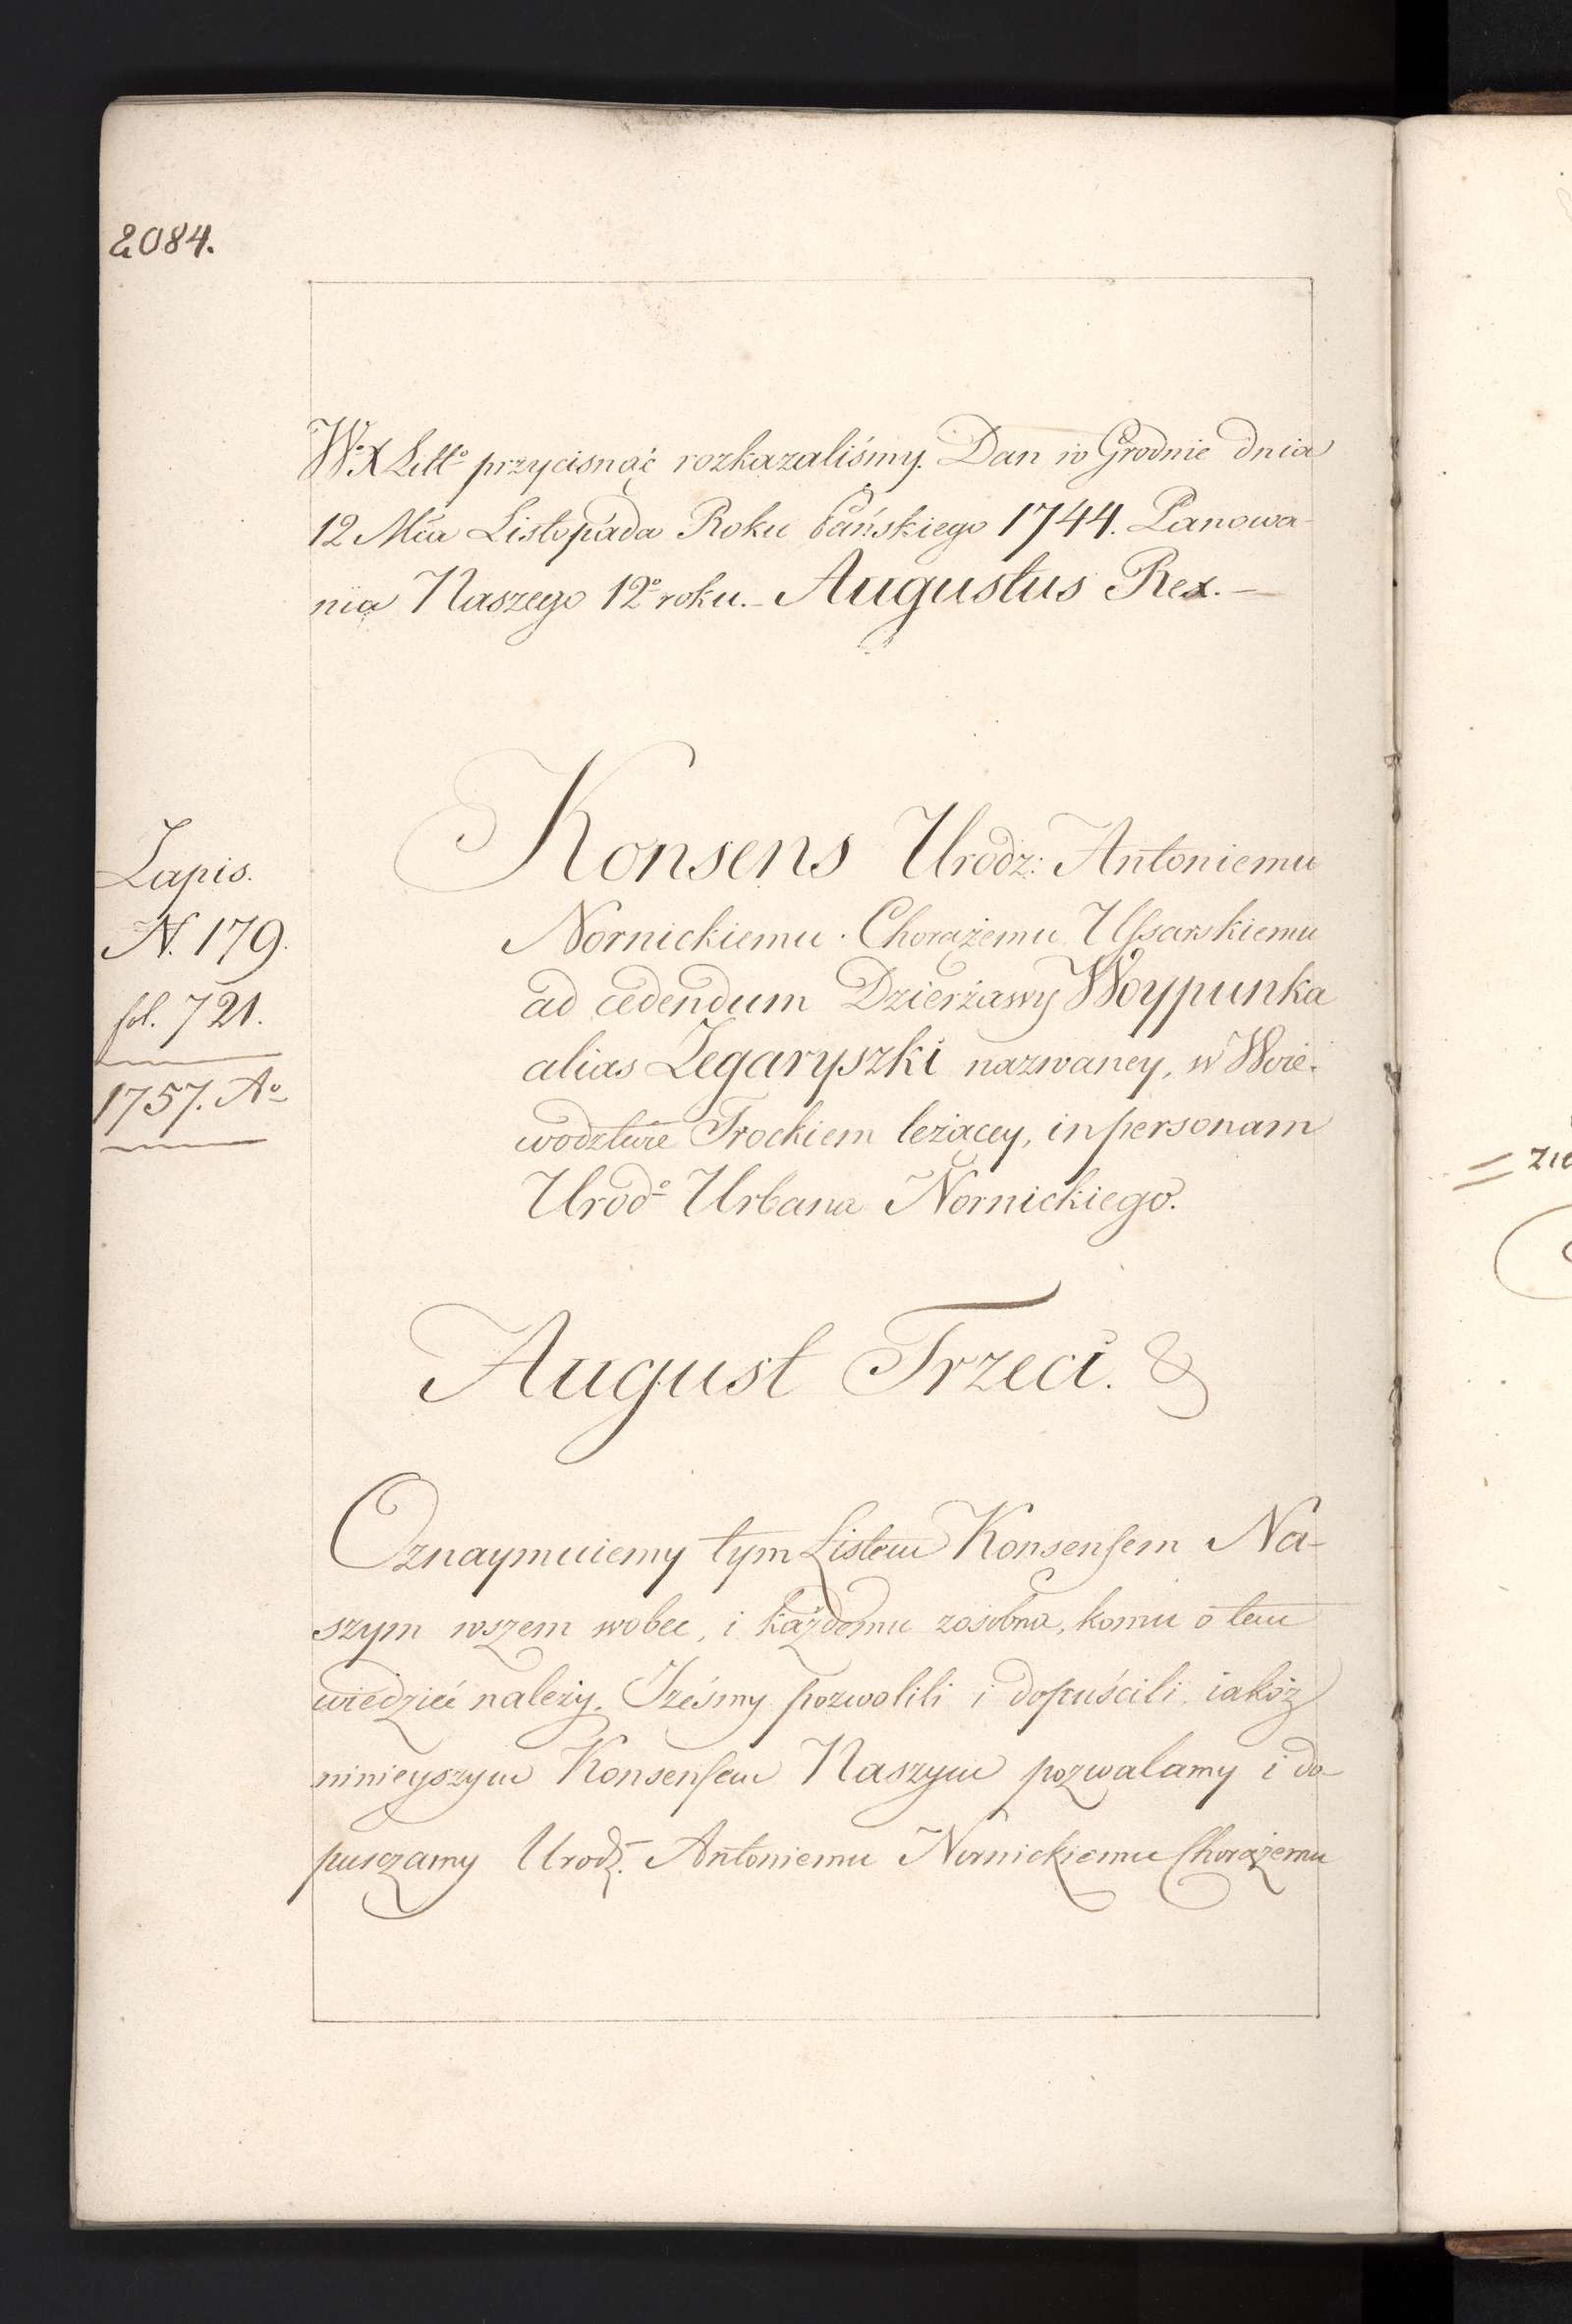 2084.
WoX Litto przycisnąć rozkazaliśmy. Dan w Grodnie dnia
12 Mca Listopada Roku Pańskiego 1744. Panowa-
nia Naszego 12o roku. – Augustus Rex. –
Zapis.
N. 179.
fol. 721.
1757. Ao
Konsens Urodz: Antoniemu
Nornickiemu Chorążemu Ussarskiemu
ad cedendum Dzierżawy Woypunka
alias Żegaryszki nazwaney, w Woie-
wodztwie Trockiem leżącey, in personam
Urodo Urbana Nornickiego.
August Trzeci. &
Oznaymuiemy tym Listem Konsensem Na-
szym wszem wobec, i każdemu zosobna, komu o tem
wiedzieć należy. Iżeśmy pozwolili i dopuścili iakóż
ninieyszym Konsensem Naszym pozwalamy i do-
puszczamy Urodz. Antoniemu Nornickiemu Chorążemu